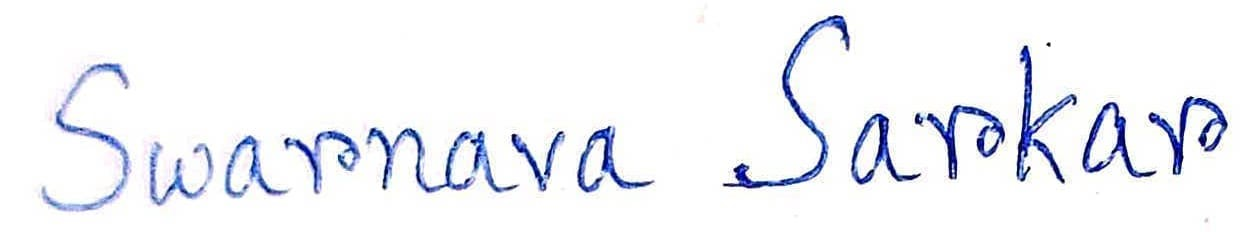 Swarnava Sarkar